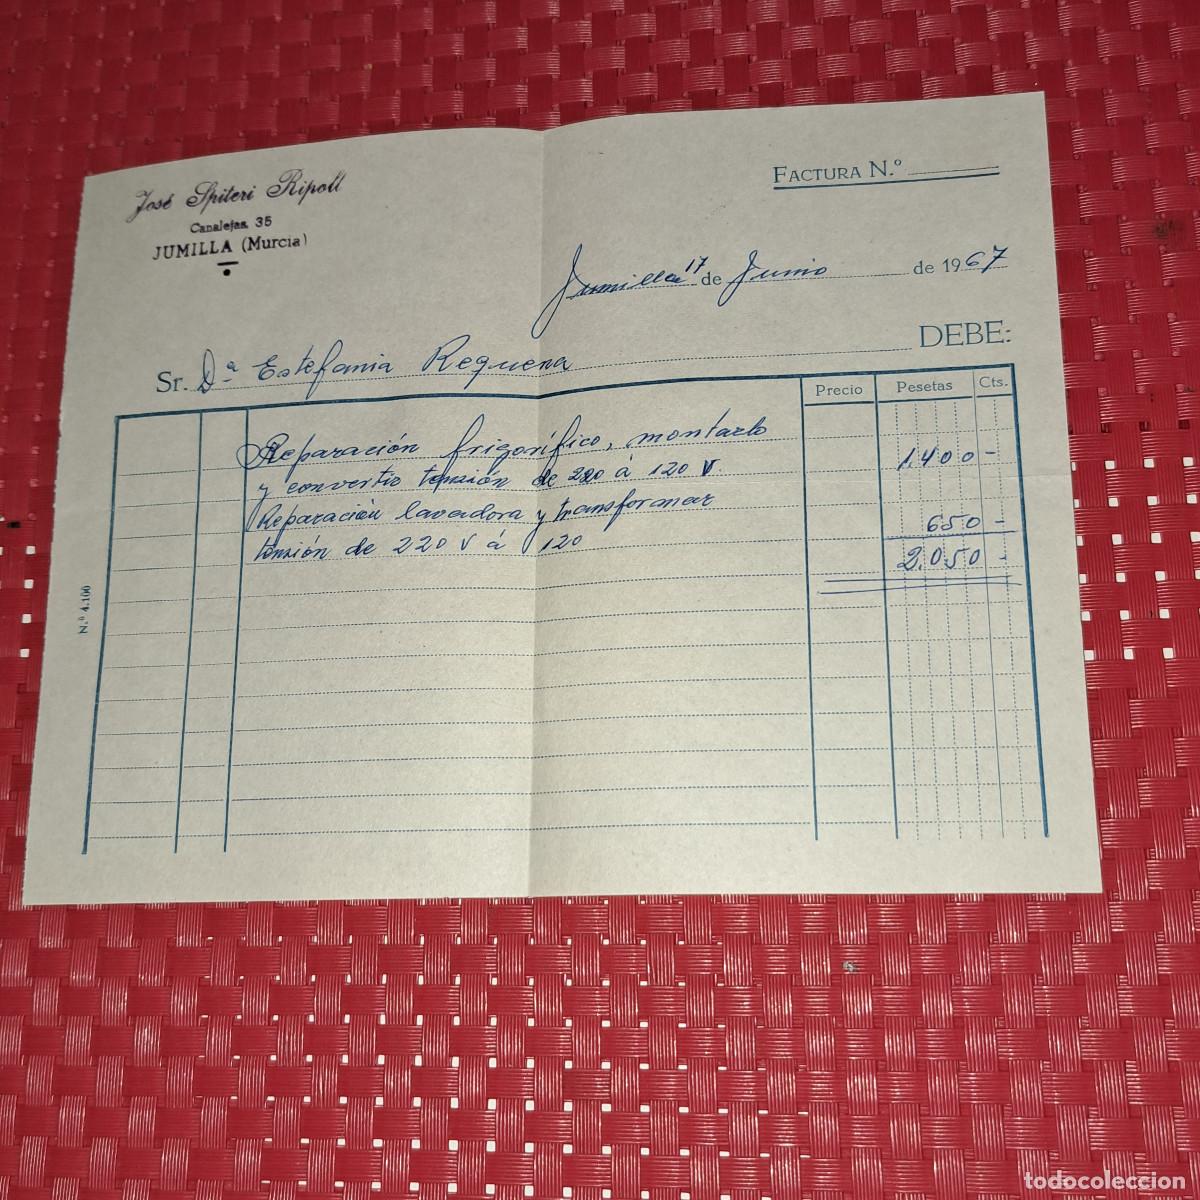 José Spiteri Ripoll
Canalejas, 35
JUMILLA (Murcia)
FACTURA N.º
Jumilla 17 de Junio de 1967
DEBE:
Sr. D.ª Estefania Requena
Precio Pesetas Cts.
Reparación frigorífico, montarlo
y convertir tensión de 220 á 120 V. 1.400 -
Reparación lavadora y transformar
tensión de 220 V á 120 650 -
2.050 -
N.º 4.100
todocoleccion